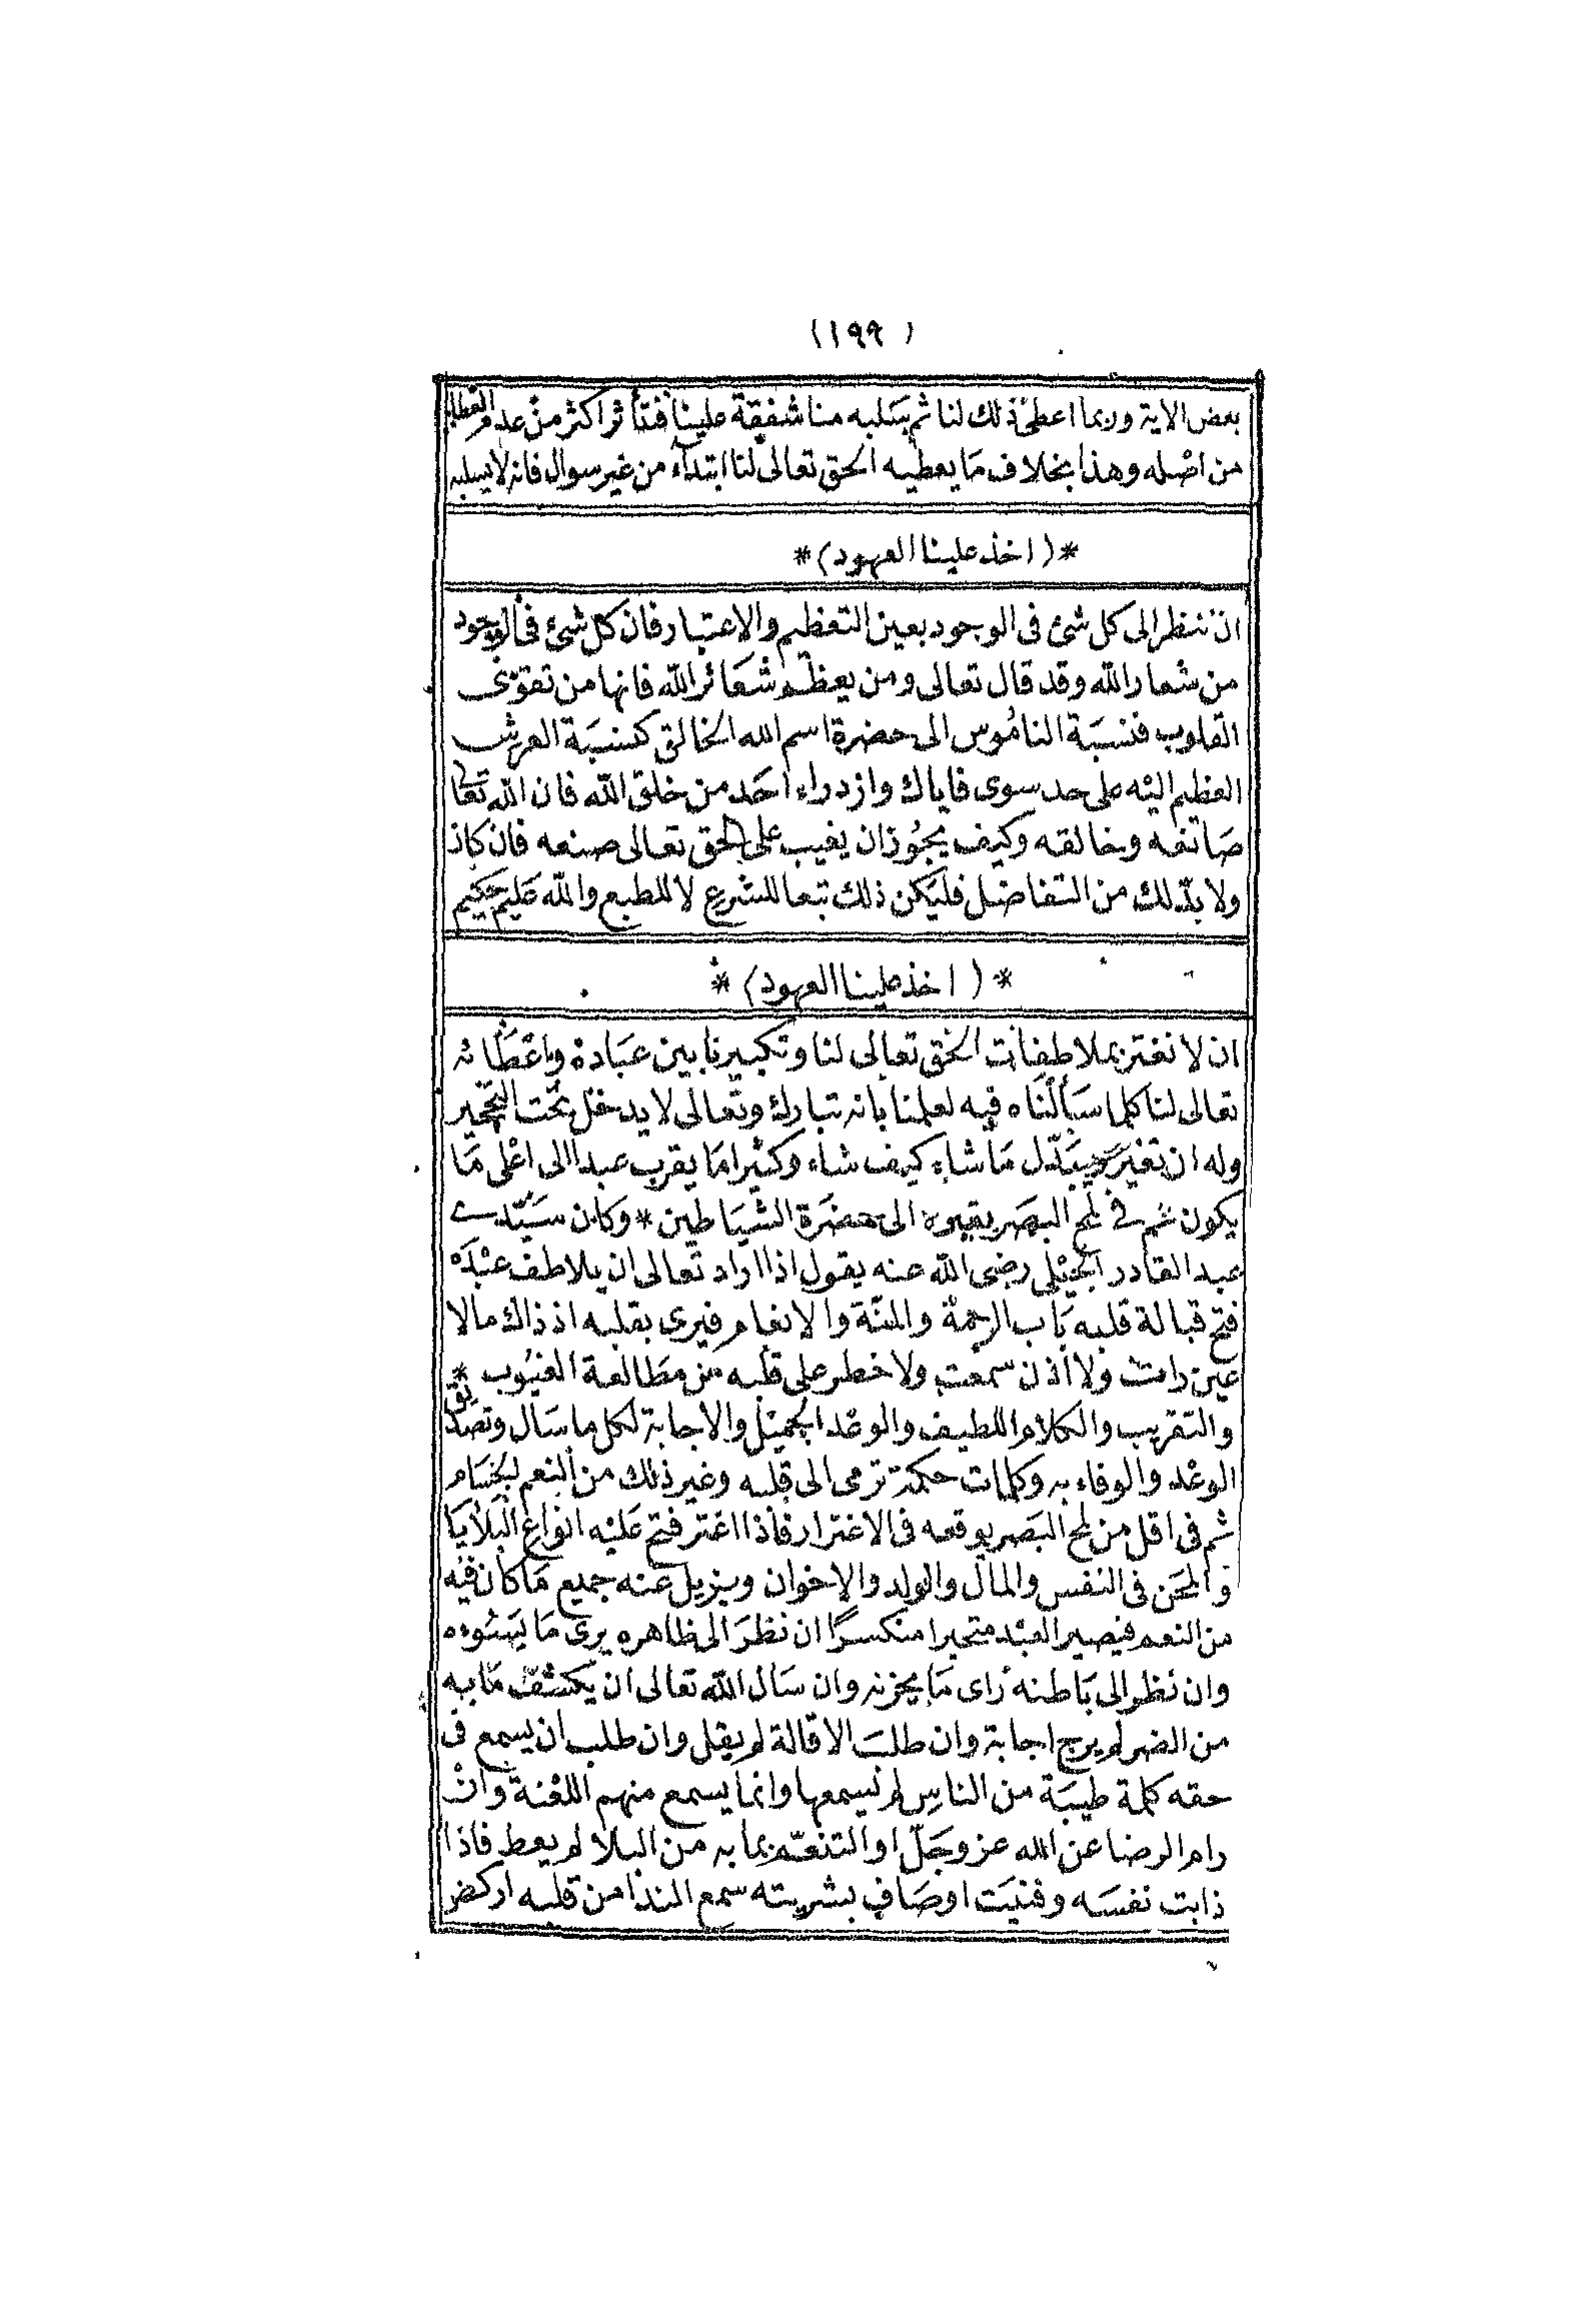 (١٩٩)
بعض الاية وربما اعطى ذلك لنا ثم يسلبه منا شفقة علينا فنتأثر اكثر من عدم العطا
من اصله وهذا بخلاف ما يعطيه الحق تعالى لنا ابتدآء من غير سوال فانه لا يسلبه
*(اخذ علينا العهود)*
ان ننظر الى كل شئ فى الوجود بعين التعظيم والاعتبار فان كل شئ فى الوجود
من شعار الله وقد قال تعالى ومن يعظم شعائر الله فانها من تقوى
القلوب فنسبة الناموس الى حضرة اسم الله الخالق كنسبة العرش
العظيم اليه على حد سوى فاياك وازدراء احد من خلق الله فان الله تعا
صانعه وخالقه وكيف يجوز ان يعيب على الحق تعالى صنعه فان كان
ولا بد لك من التفاضل فليكن ذلك تبعا للشرع لا للطبع والله عليم حكيم
*(اخذ علينا العهود)*
ان لا نغتر بملاطفات الحق تعالى لنا وتكبيرنا بين عباده واعطائه
تعالى لنا كلما سألناه فيه لعلمنا بانه تبارك وتعالى لا يدخل تحت التحجير
وله ان يغير ويبدل ما شاء كيف شاء وكثيرا ما يقرب عبدا الى اعلى ما
يكون ثم فى لمح البصر يقيمه الى حضرة الشياطين * وكان سيدى
عبد القادر الجيلى رضى الله عنه يقول اذا اراد تعالى ان يلاطف عبده
فتح قبالة قلبه باب الرحمة والمنة والانعام فيرى بقلبه اذ ذاك مالا
عين رات ولا اذن سمعت ولا خطر على قلبه من مطالعة الغيوب *
والتقريب والكلام اللطيف والوعد الجميل والاجابة لكل ما سال وتصديق
الوعد والوفاء به وكلمات حكمة ترمى الى قلبه وغير ذلك من النعم الجسام
ثم فى اقل من لمح البصر يوقعه فى الاغترار فاذا اغتر فتح عليه انواع البلايا
والمحن فى النفس والمال والولد والاخوان ويزيل عنه جميع ما كان فيه
من النعم فيصير العبد متحيرا منكسرًا ان نظر الى ظاهره يرى ما يسؤه
وان نظر الى باطنه راى ما يحزنه وان سال الله تعالى ان يكشف ما به
من الضر لم يرج اجابة وان طلب الاقالة لم يقل وان طلب ان يسمع فى
حقه كلمة طيبة من الناس لم يسمعها وانما يسمع منهم اللعنة وان
رام الرضا عن الله عز وجل او التنعم بما به من البلا لم يعط فاذا
ذابت نفسه وفنيت اوصاف بشريته سمع الندا من قلبه اركض